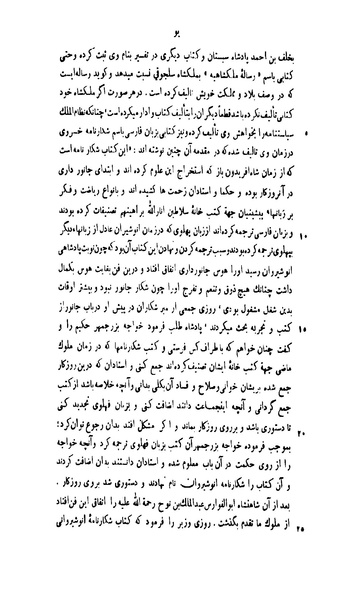 یو
بخلف بن احمد پادشاه سیستان و کتاب دیگری در تفسیر بنام وی ثبت کرده و حتی
کتابی باسم «رسالهٔ ملکشاهیه» بملکشاه سلجوقی نسبت میدهد و گوید رساله‌ایست
که در وصف بلاد و مملکت خویش تألیف کرده است. در هر صورت اگر ملکشاه خود
کتابی تألیف نکرده باشد قطعاً دیگران را بتألیف کتاب وادار میکرده است؛ چنانکه نظام الملک
۵ سیاستنامه را بخواهش وی تألیف کرده و نیز کتابی بزبان فارسی باسم شکارنامه خسروی
در زمان وی تألیف شده که در مقدمه آن چنین نوشته اند: «این کتاب شکار نامه است
که از زمان شاه افریدون باز که استخراج این علوم کرده اند و ابتدای جانور داری
در آن روزگار بوده و حکما و استادان زحمت ها کشیده اند و بانواع ریاضت و فکر
بر زبانها پیشینیان جهة کتب خانهٔ سلاطین انارالله براهینهم تصنیفات کرده بودند
۱۰ و بزبان فارسی ترجمه کرده‌اند از زبان پهلوی که در زمان انوشیروان عادل از زبانهاء دیگر
بپهلوی ترجمه کرده بودند و سبب ترجمه کردن و نهادن این کتاب آن بود که چون نوبت پادشاهی
انوشیروان رسید اورا هوس جانورداری اتفاق افتاد و درین فن بغایت هوس بکمال
داشت چنانک هیچ ذوق و تنعم و تفرج اورا چون شکار جانور نبود و بیشتر اوقات
بدین شغل مشغول بودی، روزی جمعی از میر شکاران در پیش او درباب جانور از
۱۵ کتب و تجربه بحث میکردند، پادشاه طلب فرمود خواجه بزرجمهر حکیم را و
گفت چنان خواهم که باطراف کس فرستی و کتب شکارنامها که در زمان ملوک
ماضی جهة کتب خانهٔ ایشان تصنیف کرده‌اند جمع کنی و استادان که درین روزگار
جمع شده بریشان خوانی و صلاح و فساد آن بکلی بدانی و آنچه خلاصه باشد از کتب
جمع گردانی و آنچه اینجماعت دانند اضافت کنی و بزبان فهلوی تجدید کنی
۲۰ تا دستوری باشد و بر روی روزگار بماند و اگر مشکلی افتد بدان رجوع توان کرد؛
بموجب فرموده خواجه بزرجمهر آن کتب بزبان فهلوی ترجمه کرد و آنچه خواجه
را از روی حکمت در آن باب معلوم شده و استادان دانستند بدان اضافت کردند
و آن کتاب را شکارنامه انوشیروان نام نهادند و دستوری شد بروی روزگار.
بعد از آن شاهنشاه ابوالفوارس عبدالملک بن نوح رحمة الله علیه را اتفاق این فن افتاد
۲۵ از ملوک ما تقدم بگذشت. روزی وزیر را فرمود که کتاب شکارنامهٔ انوشیروانی